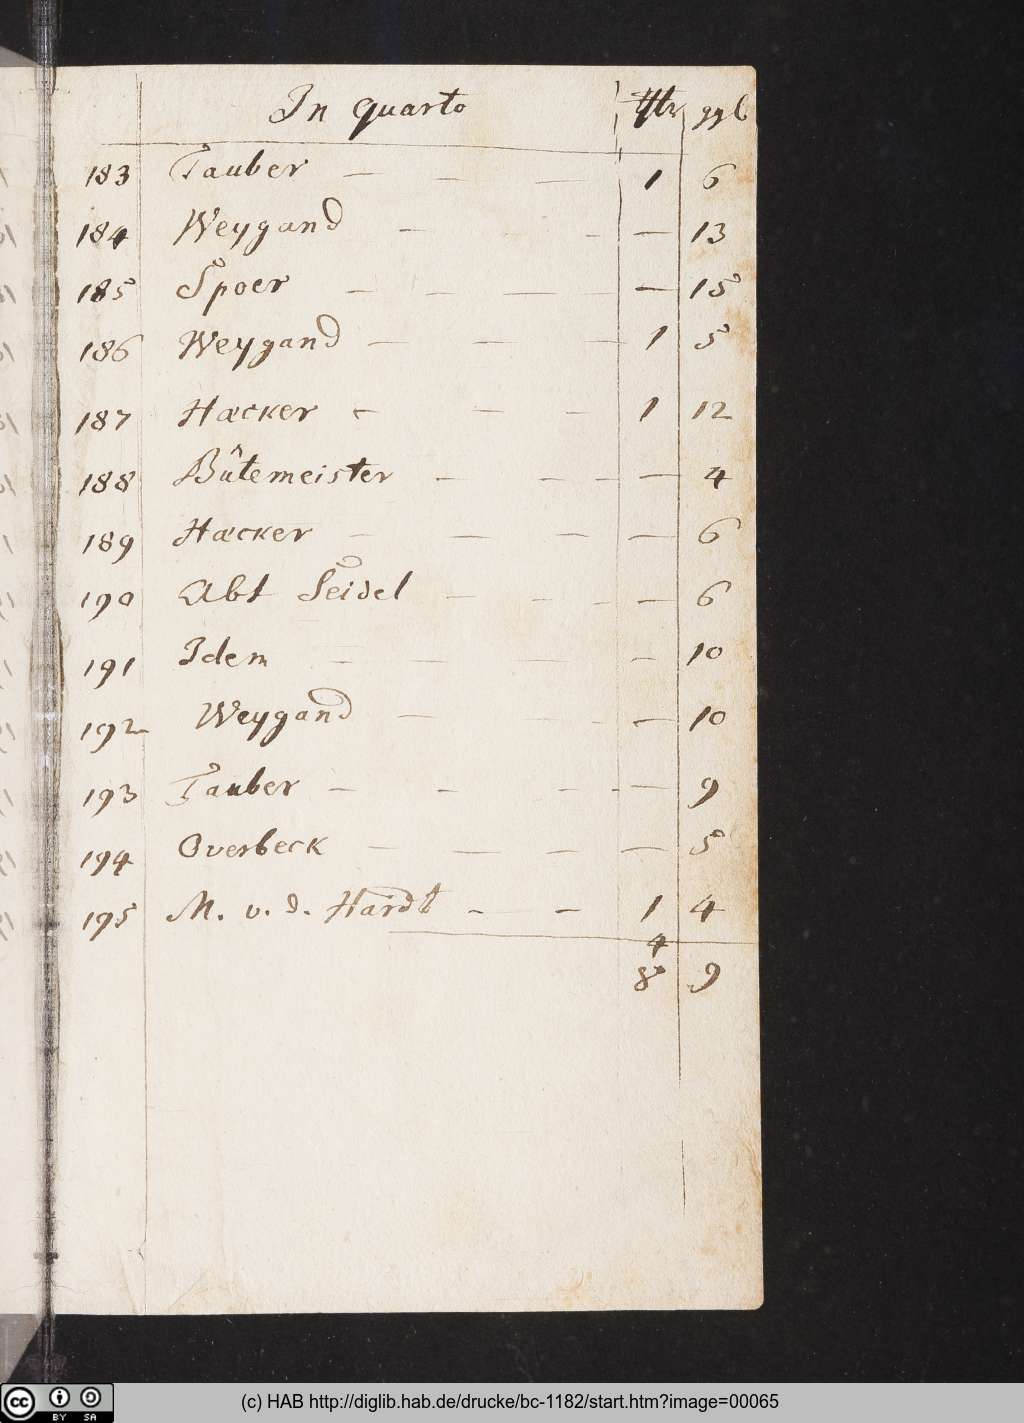 In quarto thlr ggl
183 Tauber — — — 1 6
184 Weygand — - — 13
185 Spoer — — — — 15
186 Weygand — — — 1 5
187 Hacker — — — 1 12
188 Bûtemeister — — - — 4
189 Hacker — — — — 6
190 Abt Seidel — — - — 6
191 Idem — — — — — 10
192 Weygand — — - — 10
193 Tauber — - — - — 9
194 Overbeck — — — — 5
195 M. v. d. Hardt — — 1 4
4
8 9
(c) HAB http://diglib.hab.de/drucke/bc-1182/start.htm?image=00065
cc BY SA